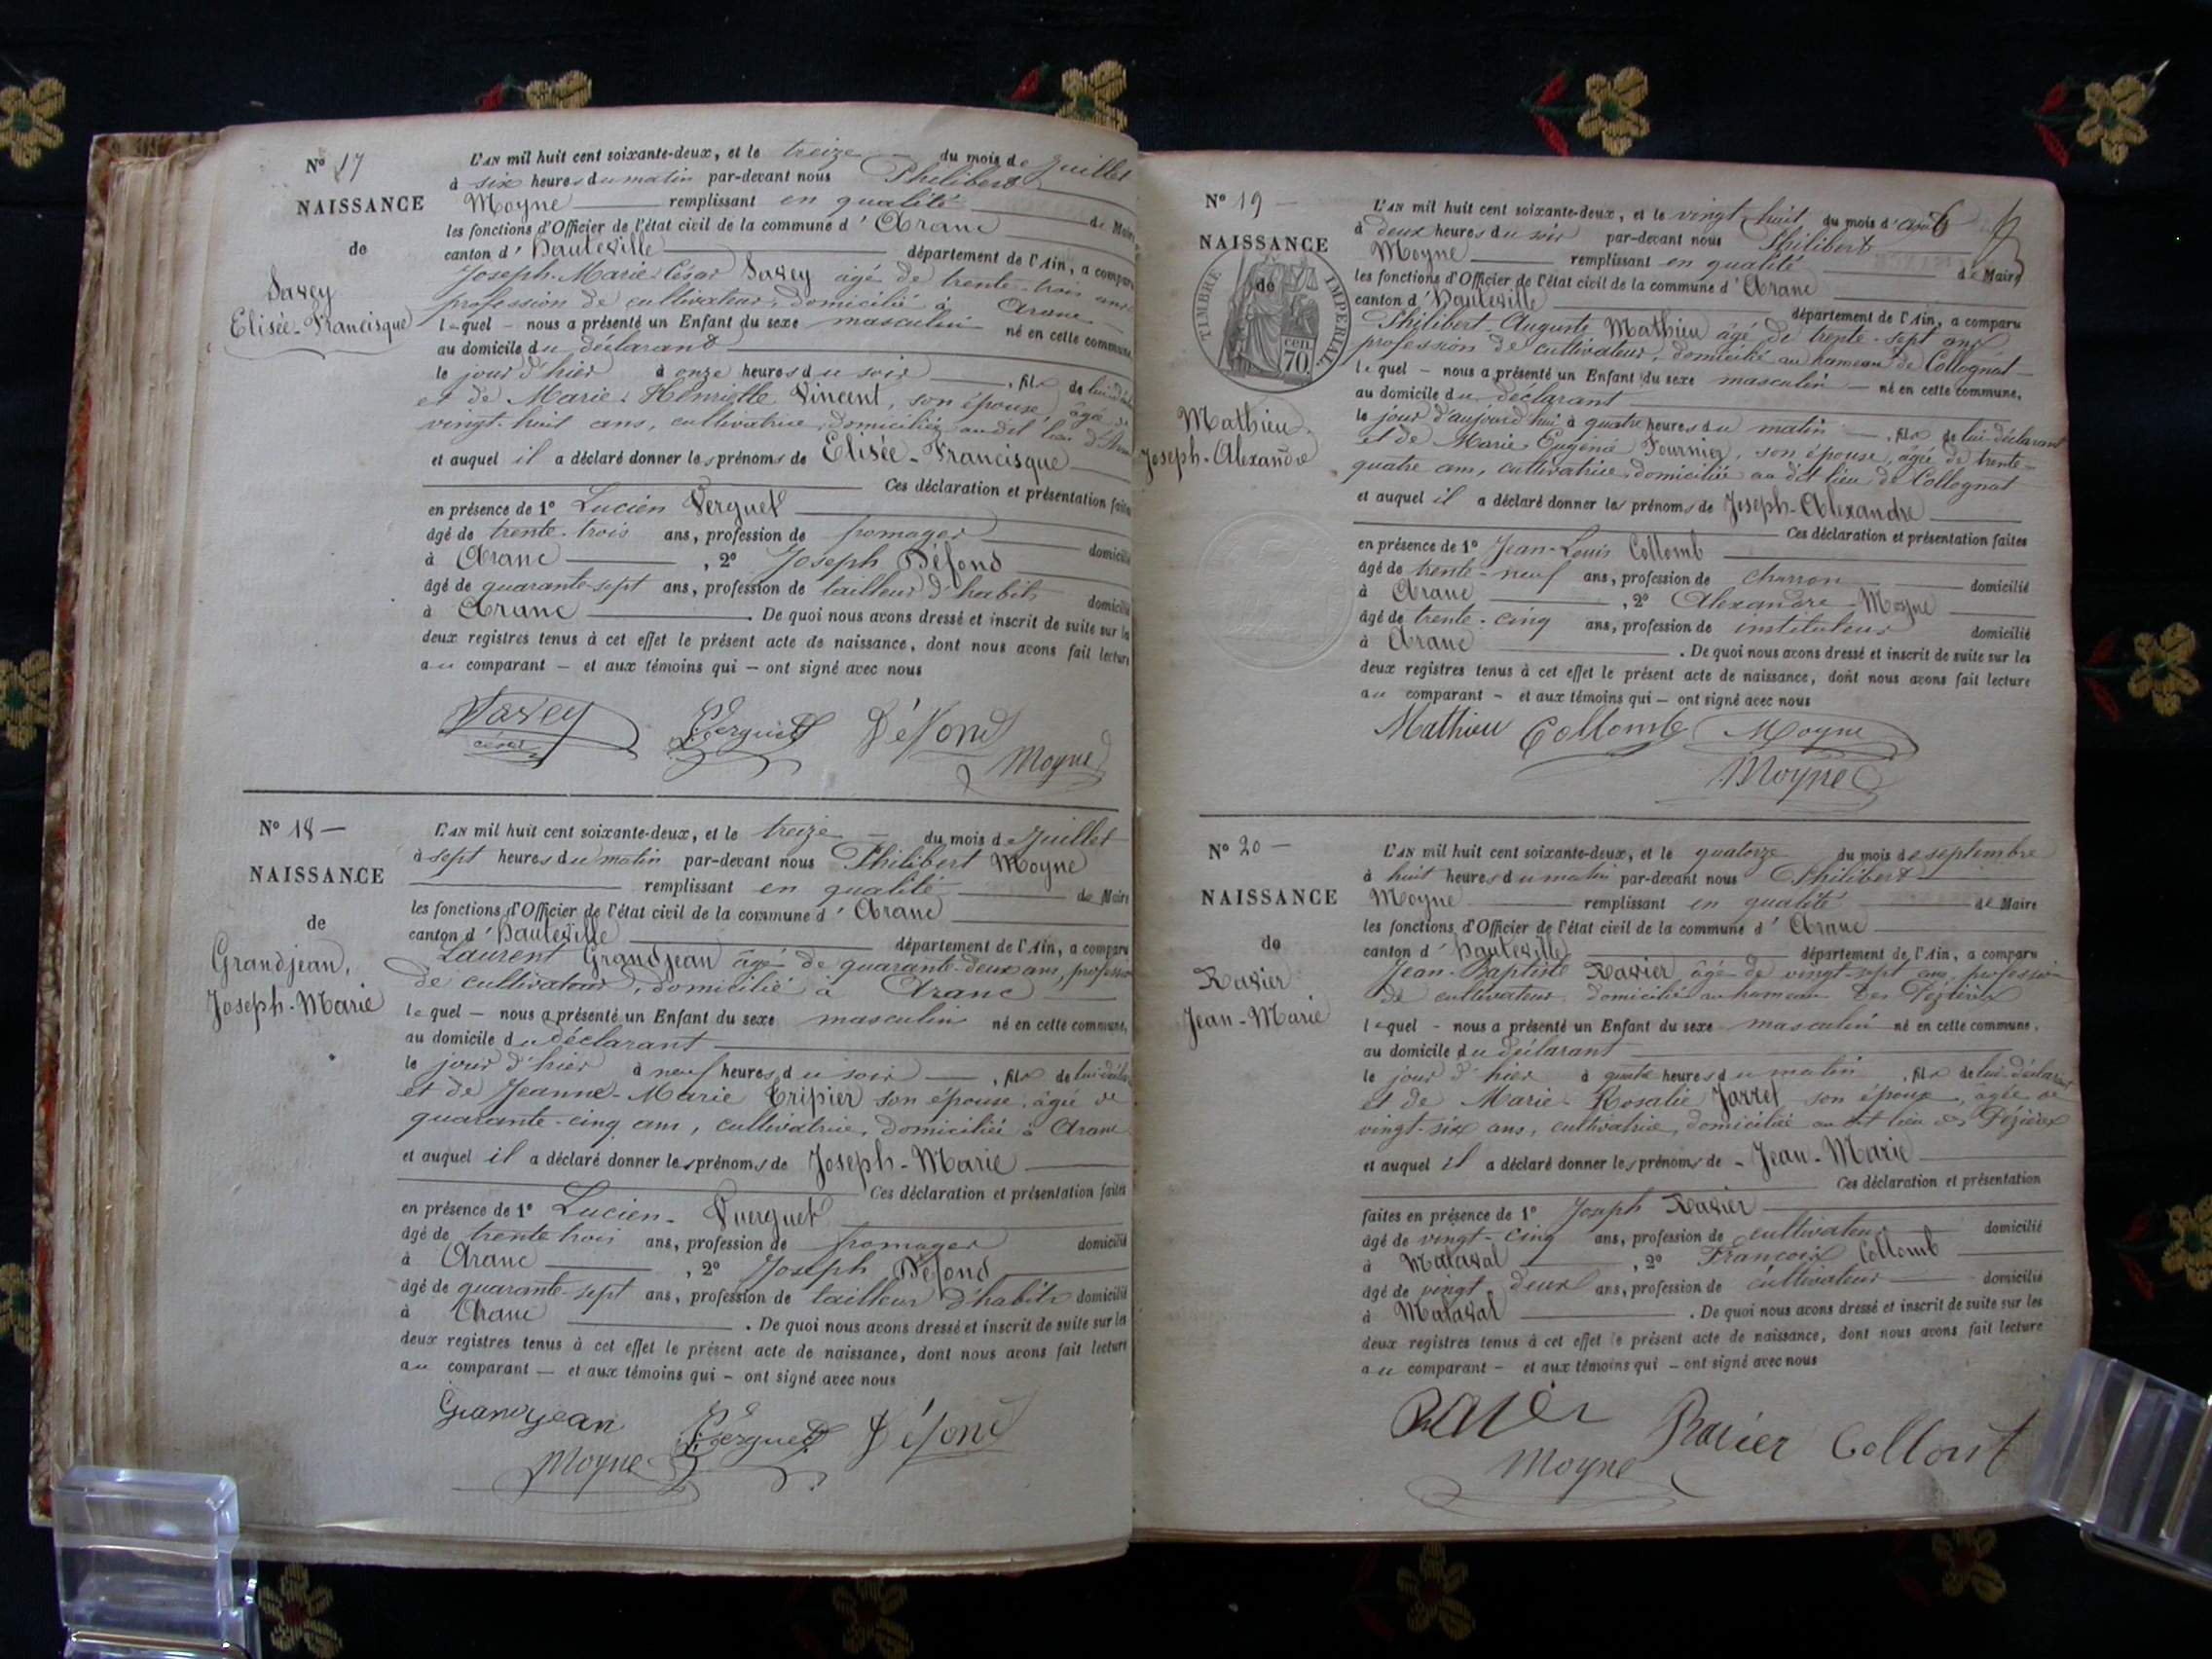 N° 17
NAISSANCE
de
Savey
Elisée-Francisque
L'AN mil huit cent soixante-deux, et le treize du mois de Juillet
à six heures du matin par-devant nous Philibert
Moyne remplissant en qualité de Maire
les fonctions d'Officier de l'état civil de la commune d'Aranc
canton d'Hauteville département de l'Ain, a comparu
Joseph-Marie-César Savey âgé de trente-trois ans
profession de cultivateur, domicilié à Aranc
lequel — nous a présenté un Enfant du sexe masculin né en cette commune,
au domicile du déclarant
le jour d'hier à onze heures du soir, fils de lui
et de Marie-Henriette Vincent, son épouse, âgée de
vingt-huit ans, cultivatrice, domiciliée audit lieu d'
et auquel il a déclaré donner les prénoms de Elisée-Francisque
Ces déclaration et présentation faites
en présence de 1° Lucien Verguet
âgé de trente-trois ans, profession de fromager domicilié
à Aranc, 2° Joseph Défond
âgé de quarante-sept ans, profession de tailleur d'habits domicilié
à Aranc. De quoi nous avons dressé et inscrit de suite sur les
deux registres tenus à cet effet le présent acte de naissance, dont nous avons fait lecture
au comparant — et aux témoins qui — ont signé avec nous
Savey Verguet Défond
césar Moyne
N° 18 —
NAISSANCE
de
Grandjean,
Joseph-Marie
L'AN mil huit cent soixante-deux, et le treize — du mois de Juillet
à sept heures du matin par-devant nous Philibert Moyne
remplissant en qualité de Maire
les fonctions d'Officier de l'état civil de la commune d'Aranc
canton d'Hauteville département de l'Ain, a comparu
Laurent Grandjean âgé de quarante-deux ans, profession
de cultivateur, domicilié à Aranc
lequel — nous a présenté un Enfant du sexe masculin né en cette commune,
au domicile du déclarant
le jour d'hier à neuf heures du soir, fils de lui
et de Jeanne-Marie Tripier son épouse, âgée de
quarante-cinq ans, cultivatrice, domiciliée à Aranc
et auquel il a déclaré donner les prénoms de Joseph-Marie
Ces déclaration et présentation faites
en présence de 1° Lucien Verguet
âgé de trente trois ans, profession de fromager domicilié
à Aranc, 2° Joseph Défond
âgé de quarante-sept ans, profession de tailleur d'habits domicilié
à Aranc. De quoi nous avons dressé et inscrit de suite sur les
deux registres tenus à cet effet le présent acte de naissance, dont nous avons fait lecture
au comparant — et aux témoins qui — ont signé avec nous
Grandjean Verguet Défond
Moyne
N° 19 —
NAISSANCE
de
TIMBRE IMPERIAL
70 cen.
Mathieu
Joseph-Alexandre
L'AN mil huit cent soixante-deux, et le vingt huit du mois d'août
à deux heures du soir par-devant nous Philibert
Moyne remplissant en qualité de Maire
les fonctions d'Officier de l'état civil de la commune d'Aranc
canton d'Hauteville département de l'Ain, a comparu
Philibert-Auguste Mathieu âgé de trente-sept ans
profession de cultivateur, domicilié au hameau de Collognat
lequel — nous a présenté un Enfant du sexe masculin — né en cette commune,
au domicile du déclarant
le jour d'aujourd'hui à quatre heures du matin, fils de lui déclarant
et de Marie-Eugénie Fournier, son épouse, âgée de trente-
quatre ans, cultivatrice, domiciliée au dit lieu de Collognat
et auquel il a déclaré donner les prénoms de Joseph-Alexandre
Ces déclaration et présentation faites
en présence de 1° Jean-Louis Collomb
âgé de trente-neuf ans, profession de charron domicilié
à Aranc, 2° Alexandre Moyne
âgé de trente-cinq ans, profession de instituteur domicilié
à Aranc. De quoi nous avons dressé et inscrit de suite sur les
deux registres tenus à cet effet le présent acte de naissance, dont nous avons fait lecture
au comparant — et aux témoins qui — ont signé avec nous
Mathieu Collomb Moyne
Moyne
N° 20 —
NAISSANCE
de
Ravier
Jean-Marie
L'AN mil huit cent soixante-deux, et le quatorze du mois de septembre
à huit heures du matin par-devant nous Philibert
Moyne remplissant en qualité de Maire
les fonctions d'Officier de l'état civil de la commune d'Aranc
canton d'Hauteville département de l'Ain, a comparu
Jean-Baptiste Ravier âgé de vingt-sept ans, profession
de cultivateur domicilié au hameau des Pézières
lequel — nous a présenté un Enfant du sexe masculin né en cette commune,
au domicile du déclarant
le jour d'hier à quatre heures du matin, fils de lui déclarant
et de Marie-Rosalie Jarret son épouse, âgée de
vingt-six ans, cultivatrice, domiciliée au dit lieu des Pézières
et auquel il a déclaré donner les prénoms de — Jean-Marie
Ces déclaration et présentation
faites en présence de 1° Joseph Ravier
âgé de vingt-cinq ans, profession de cultivateur domicilié
à Malaval, 2° François Collomb
âgé de vingt deux ans, profession de cultivateur domicilié
à Malaval. De quoi nous avons dressé et inscrit de suite sur les
deux registres tenus à cet effet le présent acte de naissance, dont nous avons fait lecture
au comparant — et aux témoins qui — ont signé avec nous
Ravier Ravier Collont
Moyne